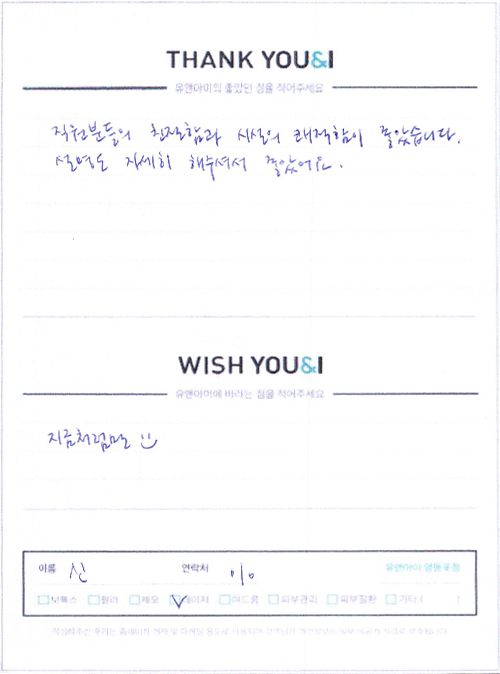 THANK YOU&I
유앤아이의 좋았던 점을 적어주세요
직원분들의 친절함과 시설의 쾌적함이 좋았습니다.
설명도 자세히 해주셔서 좋았어요.
WISH YOU&I
유앤아이에 바라는 점을 적어주세요
지금처럼만
이름 신 연락처 010 유앤아이 영등포점
보톡스 필러 제모 레이저 여드름 피부관리 피부질환 기타 ( )